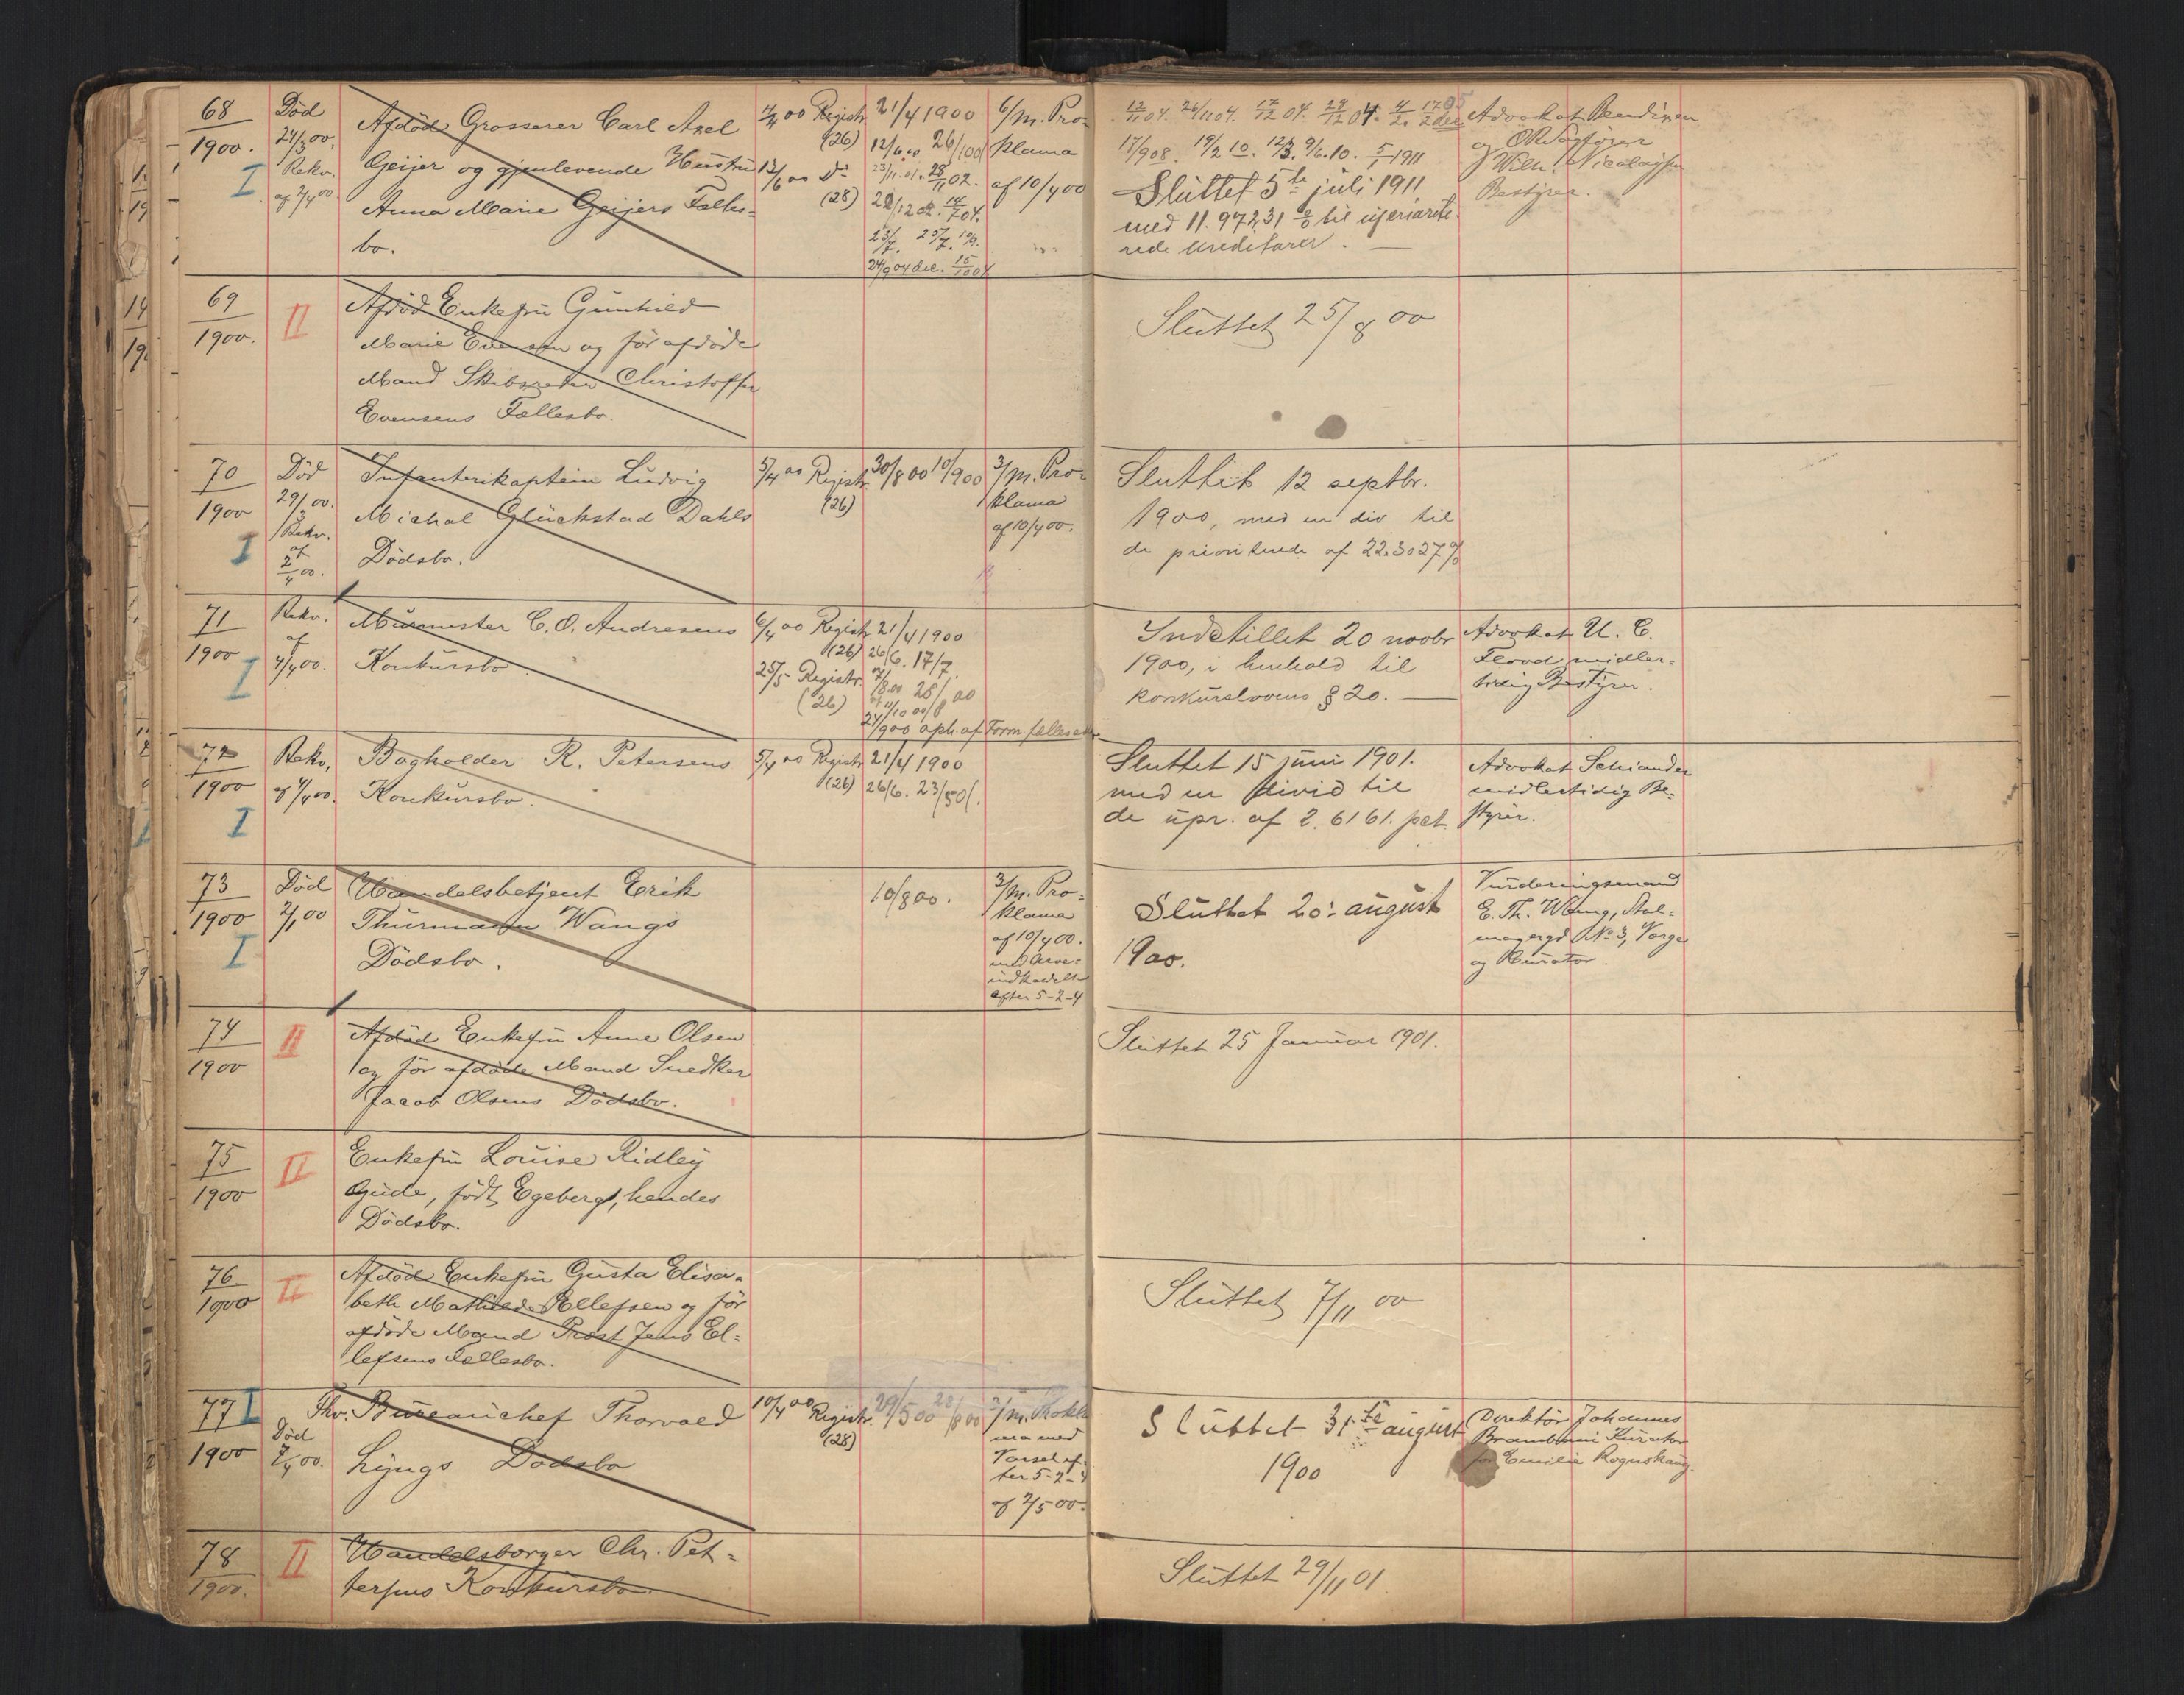 68
1900.
I
Død
24/3 00.
Rekv.
af 2/4 00.
Afdöd Grosserer Carl Axel
Geijer og gjenlevende Hustru
Anna Marie Geijers Fælles-
bo.
Registr.
(26)
13/6 00 Do
(28)
21/4 1900
12/6 00 26/10 0
23/11.01. 28/11 02.
22/12 02. 14/7 04.
23/7. 25/7.
24/9 04 dec. 15/10 04
6/m. Pro-
klama
af 10/4 00
12/11 04. 26/11 04. 17/12 04. 29/12 04.
17/9 08. 19/2 10. 12/3. 9/6. 10. 5/1 1911
Sluttet 5te juli 1911
med 11.97231 % til upriorite-
rede kreditorer. —
Advokat Bendixen
og ORSagförer
Wilh. Nicolaysen
Bestyrer.
69
1900.
II
Afdöd Enkefru Gunhild
Marie Evensen og för afdöde
Mand Skibsreder Christoffer
Evensens Fællesbo.
Sluttet 25/8 00
70
1900
I
Död
29/3 00.
Rekv.
af
2/4 00.
Infanterikaptein Ludvig
Michal Glückstad Dahls
Dödsbo.
5/4 00 Registr.
(26)
30/8 00 10/9 00
3/m. Pro-
klama
af 10/4 00.
Sluttet 12 septbr.
1900, med en div til
de prioriterede af 22.3027 %
71
1900
I
Rekv.
af
4/4 00.
Murmester C. O. Andresens
Konkursbo.
6/4 00 Registr.
(26)
25/5 Registr.
(26)
21/4 1900
26/6. 17/7.
Indstillet 20 novbr
1900, i henhold til
konkurslovens § 20. —
Advokat U. C.
Flood midler-
tidig Bestyrer.
72
1900
I
Rekv.
af 4/4 00.
Bogholder R. Petersens
Konkursbo.
5/4 00 Registr.
(26)
21/4 1900
26/6. 23/5 01.
Sluttet 15 juni 1901.
med en divid til
de upr. af 2.6161. pct.
Advokat Schiander
midlertidig Be-
styrer.
73
1900
I
Död
2/1 00
Handelsbetjent Erik
Thurmann Wangs
Dödsbo.
10/8 00.
3/m. Pro-
klama
af 10/4 00.
med Arve-
indkaldelse
efter 5-2-4
Sluttet 20. august
1900.
Vurderingsmand
E. Th. Wang,
No 3, Værge
og Kurator.
74
1900
II
Afdöd Enkefru Anne Olsen
og för afdöde Mand Snedker
Jacob Olsens Dödsbo.
Sluttet 25 Januar 1901.
75
1900
II
Enkefru Louise Ridley
Gude, födt Egeberg, hendes
Dödsbo.
76
1900
II
Afdöd Enkefru Gusta Elisa-
beth Mathilde Ellefsen og för
afdöde Mand Prost Jens El-
lefsens Fællesbo.
Sluttet 7/11 00
77
1900
I
Död
7/4 00.
Thv. Bureauchef Thorvald
Lyngs Dödsbo
10/4 00 Registr.
(28)
29/5 00 22/8 00
3/m. Prokla-
ma med
Varsel ef-
ter 5-2-4
af 2/5 00.
Sluttet 31te august
1900
Direktör Johannes
Kurator
for Emilie Rognskaug.
78
1900.
II
Handelsborger Chr. Pet-
tersens Konkursbo.
Sluttet 29/11 01.